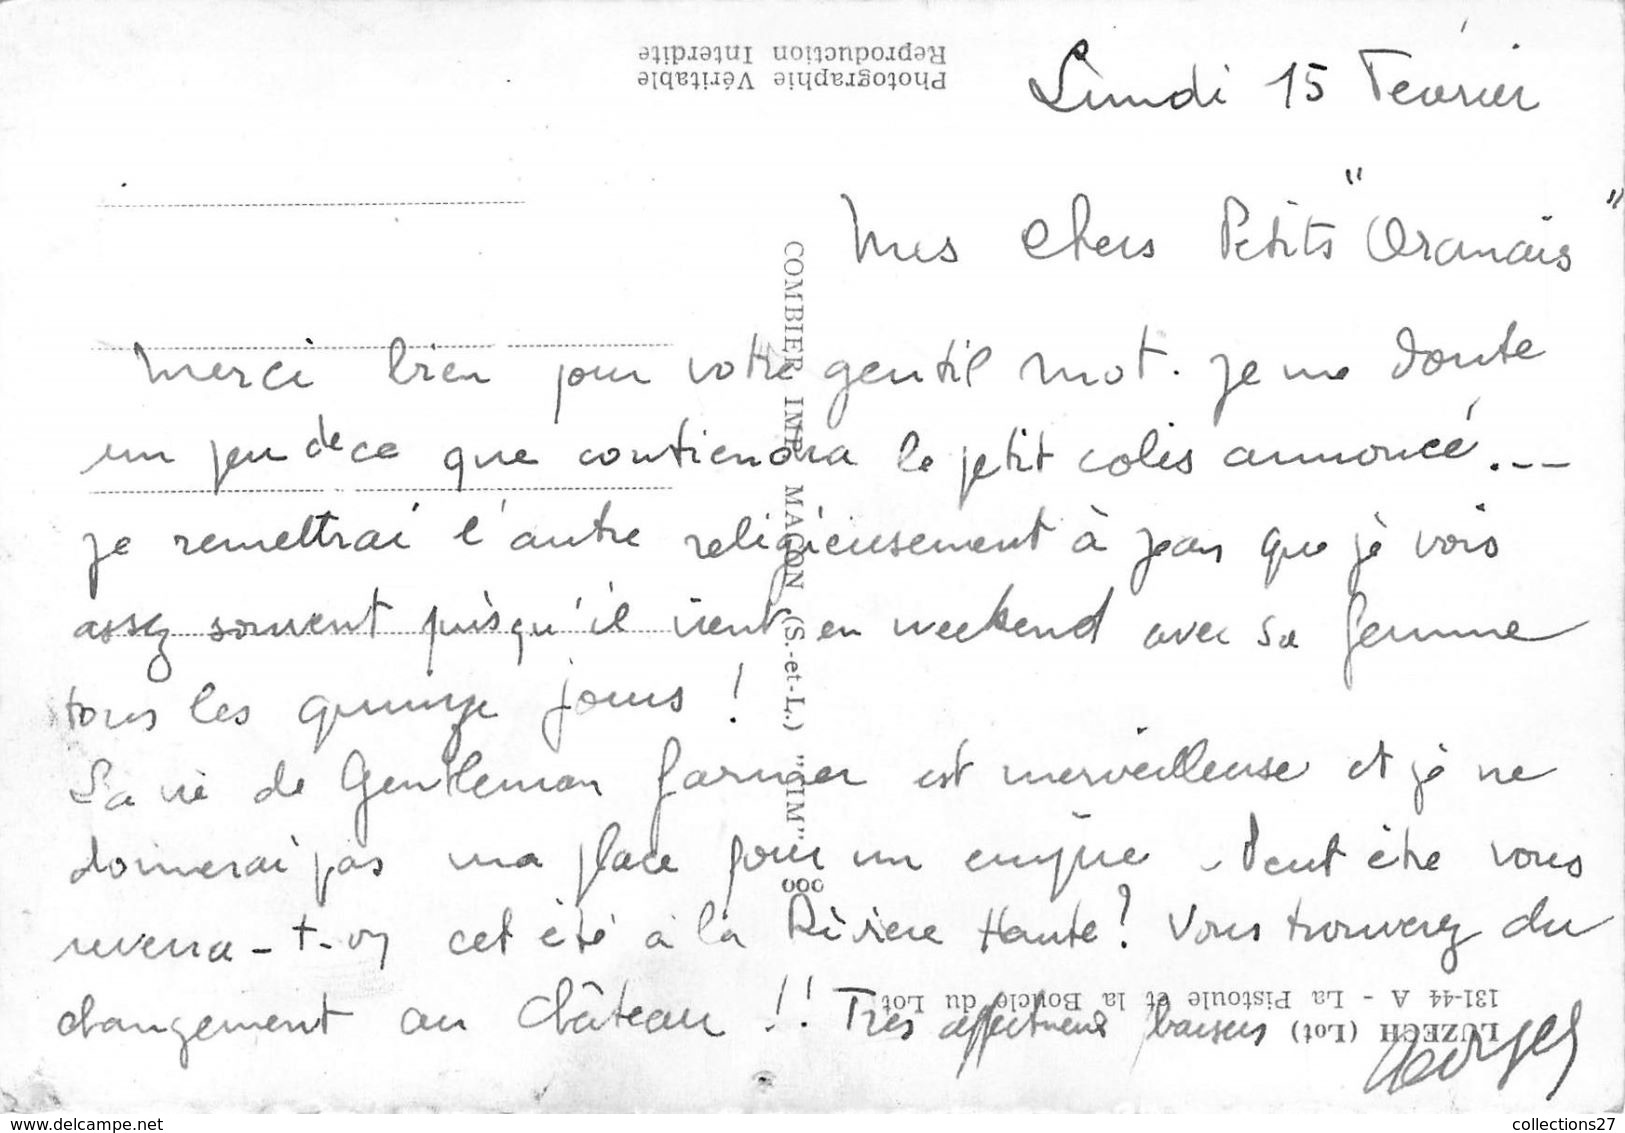 Lundi 15 Février
Mes chers Petits "Oranais"
Merci bien pour votre gentil mot. Je me doute
un peu de ce que contiendra le petit colis annoncé...
je remettrai l'autre religieusement à Jean que je vois
assez souvent puisqu'il vient en weekend avec sa femme
tous les quinze jours !
La vie de Gentleman farmer est merveilleuse et je ne
donnerai pas ma place pour un empire - Peut être vous
reverra-t-on cet été à la Rivière Haute ? Vous trouverez du
changement au Château !! Très affectueux baisers
Georges
Photographie Véritable
Reproduction Interdite
COMBIER IMP. MACON (S.-et-L.) "CIM"
LUZECH (Lot)
131-44 A - La Pistoule et la Boucle du Lot
www.delcampe.net
collections27